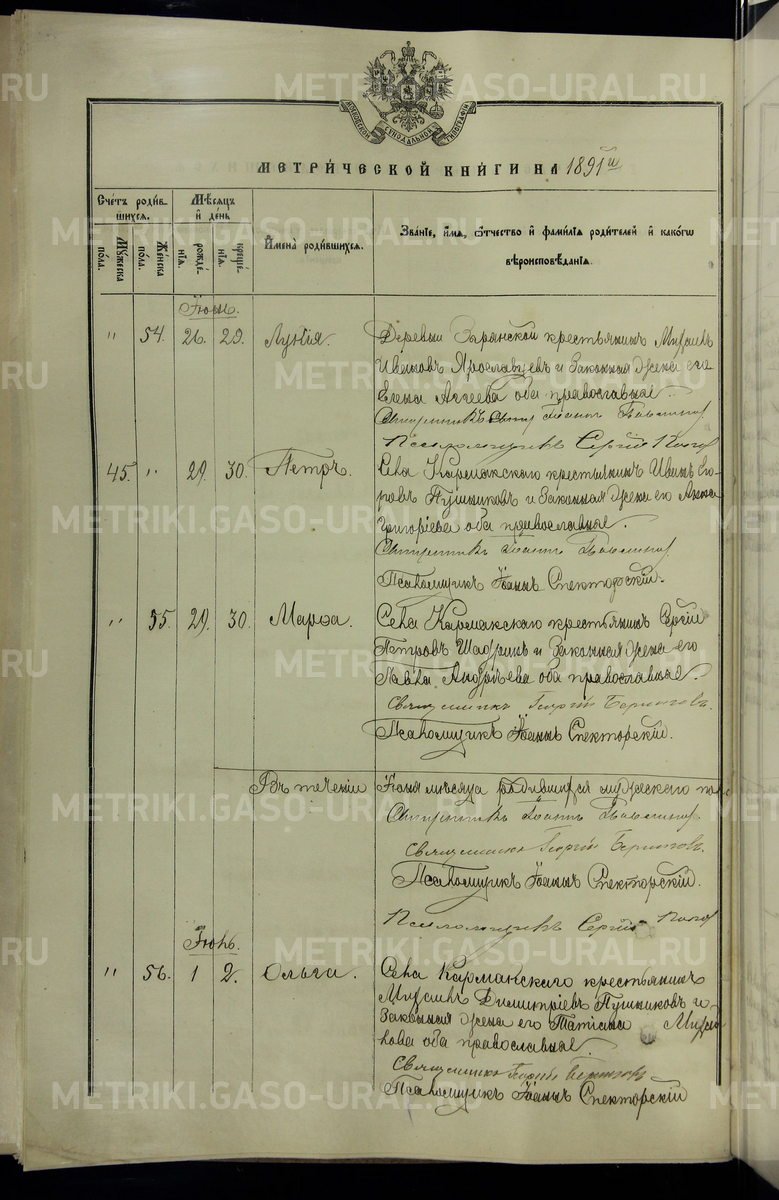 METRIKI.GASO-URAL.RU
МОСКОВСКОЙ СѴНОДАЛЬНОЙ ТИПОГРАФІИ
МЕТРИ́ЧЕСКОЙ КНИ́ГИ НА 1891й
Сче́тъ роди́в-
шихся.
Мѣ́сяцъ
и҆ де́нь
И҆мена̀ роди́вшихся.
Зва́нїе, и҆́мя, ѻ҆́тчество и҆ фами́лїя роди́телей и҆ како́гѡ
вѣроисповѣ́данїя.
Мꙋ́жеска по́ла.
Же́нска по́ла.
рожде́-нїя.
креще́-нїя.
Іюнь.
" 54. 26. 29. Лукія. Деревни Зырянской крестьянинъ Михаилъ
Ивановъ Ярославцевъ и законная жена его
Елена Аггеева оба православные.
Священникъ Іоаннъ
Псаломщикъ Сергій Попов
45. " 29. 30. Петръ. Села Кармакскаго крестьянинъ Иванъ Его-
ровъ Пушниковъ и законная жена его Анна
Григоріева оба православные.
Священникъ Іоаннъ
Псаломщикъ Іоаннъ Спекторскій.
" 55. 29. 30. Марѳа. Села Кармакскаго крестьянинъ Сергій
Петровъ Шадринъ и законная жена его
Павла Андреева оба православные.
Священникъ Георгій
Псаломщикъ Іоаннъ Спекторскій.
Въ теченіи Іюня мѣсяца родившихся мужескаго по
Священникъ Іоаннъ
Священникъ Георгій
Псаломщикъ Іоаннъ Спекторскій.
Псаломщикъ Сергій Попов
Іюль.
" 56. 1 2. Ольга. Села Кармакскаго крестьянинъ
Михаилъ Димитріевъ Пушниковъ и
законная жена его Татіана Михай
лова оба православные.
Священникъ Георгій
Псаломщикъ Іоаннъ Спекторскій